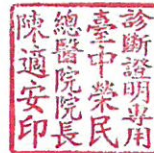 診斷證明專用
臺中榮民
總醫院院長
陳適安印